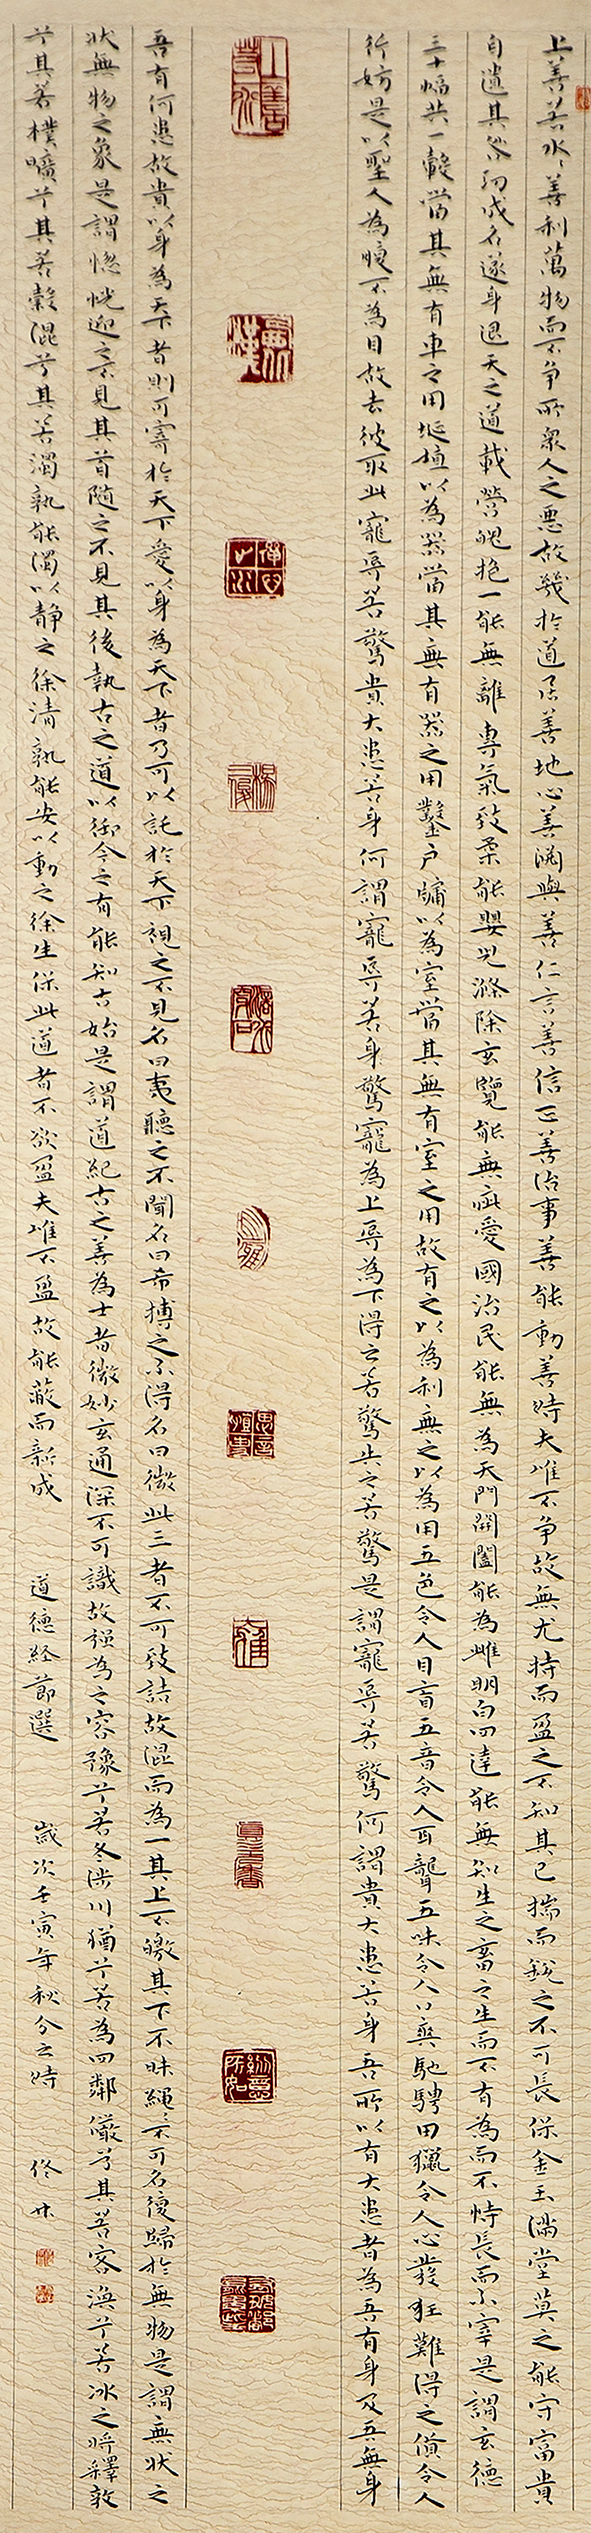 上善若水善利萬物而不争所衆人之惡故幾於道居善地心善淵與善仁言善信正善治事善能動善時夫唯不争故無尤持而盈之不知其已揣而銳之不可長保金玉滿堂莫之能守富貴
自遺其咎功成名遂身退天之道載營魄抱一能無離專氣致柔能嬰兒滌除玄覽能無疵愛國治民能無為天門開闔能為雌明白四達能無知生之畜之生而不有為而不恃長而不宰是謂玄德
三十輻共一轂當其無有車之用埏埴以為器當其無有器之用鑿户牖以為室當其無有室之用故有之以為利無之以為用五色令人目盲五音令人耳聾五味令人口爽馳騁田獵令人心發狂難得之貨令人
行妨是以聖人為腹不為目故去彼取此寵辱若驚貴大患若身何謂寵辱若身驚寵為上辱為下得之若驚失之若驚是謂寵辱若驚何謂貴大患若身吾所以有大患者為吾有身及吾無身
上善若水
吾有何患故貴以身為天下者則可寄於天下愛以身為天下者乃可以託於天下視之不見名曰夷聽之不聞名曰希搏之不得名曰微此三者不可致詰故混而為一其上不皦其下不昧繩不可名復歸於無物是謂無狀之
狀無物之象是謂惚恍迎之不見其首隨之不見其後執古之道以御今之有能知古始是謂道紀古之善為士者微妙玄通深不可識故強為之容豫兮若冬涉川猶兮若為四鄰儼兮其若客渙兮若冰之將釋敦
兮其若樸曠兮其若穀混兮其若濁孰能濁以静之徐清孰能安以動之徐生保此道者不欲盈夫唯不盈故能蔽而新成
道德经節選
歲次壬寅年秋分之時